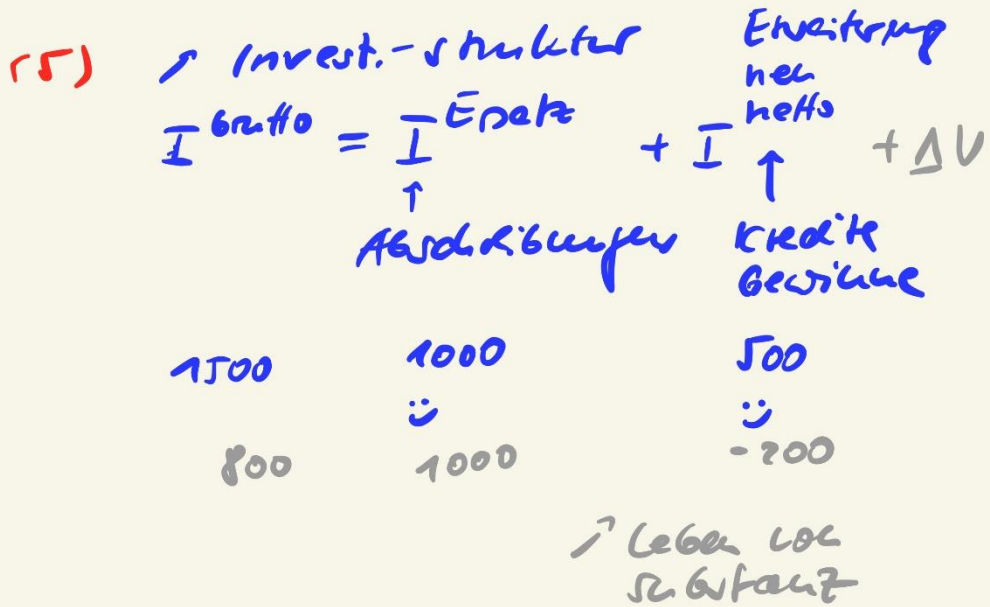 15) ↗ Invest.-struktur
Erweiterung
neu
I^Brutto = I^Ersatz + I^netto + ΔV
↑ ↑
Abschreibungen Kredite
Gewinne
1500 1000 500
:) :)
800 1000 -200
↗ Leben von
Substanz